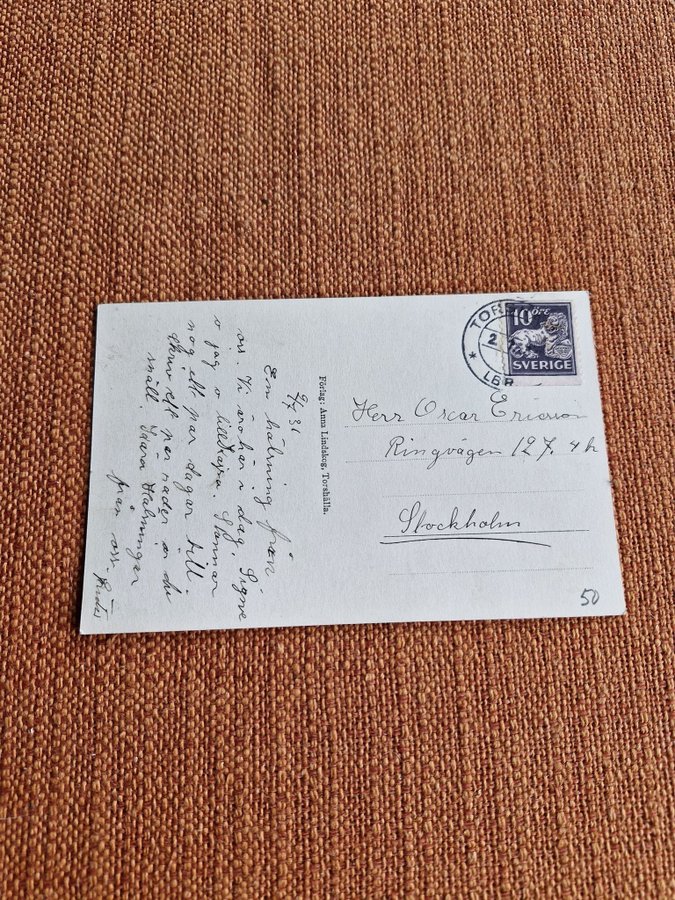 9/7 31
En hälsning från
oss. Vi äro här i dag. Signe
o jag o lillKajsa. Stannar
nog ett par dagar till.
skriv ett par rader är du
snäll. Kära Hälsningar
från oss.
Förlag: Anna Lindskog, Torshälla.
TOR
2
LBR
10 öre
SVERIGE
Herr Oscar Ericson
Ringvägen 127. 4 h
Stockholm
50